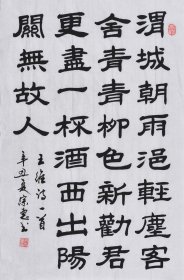 渭城朝雨浥輕塵客
舍青青柳色新勸君
更盡一杯酒西出陽
關無故人
王維诗一首
辛丑夏徐